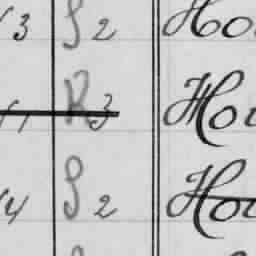 3 S 2 Ho
R3 Ho
4 S 2 Ho